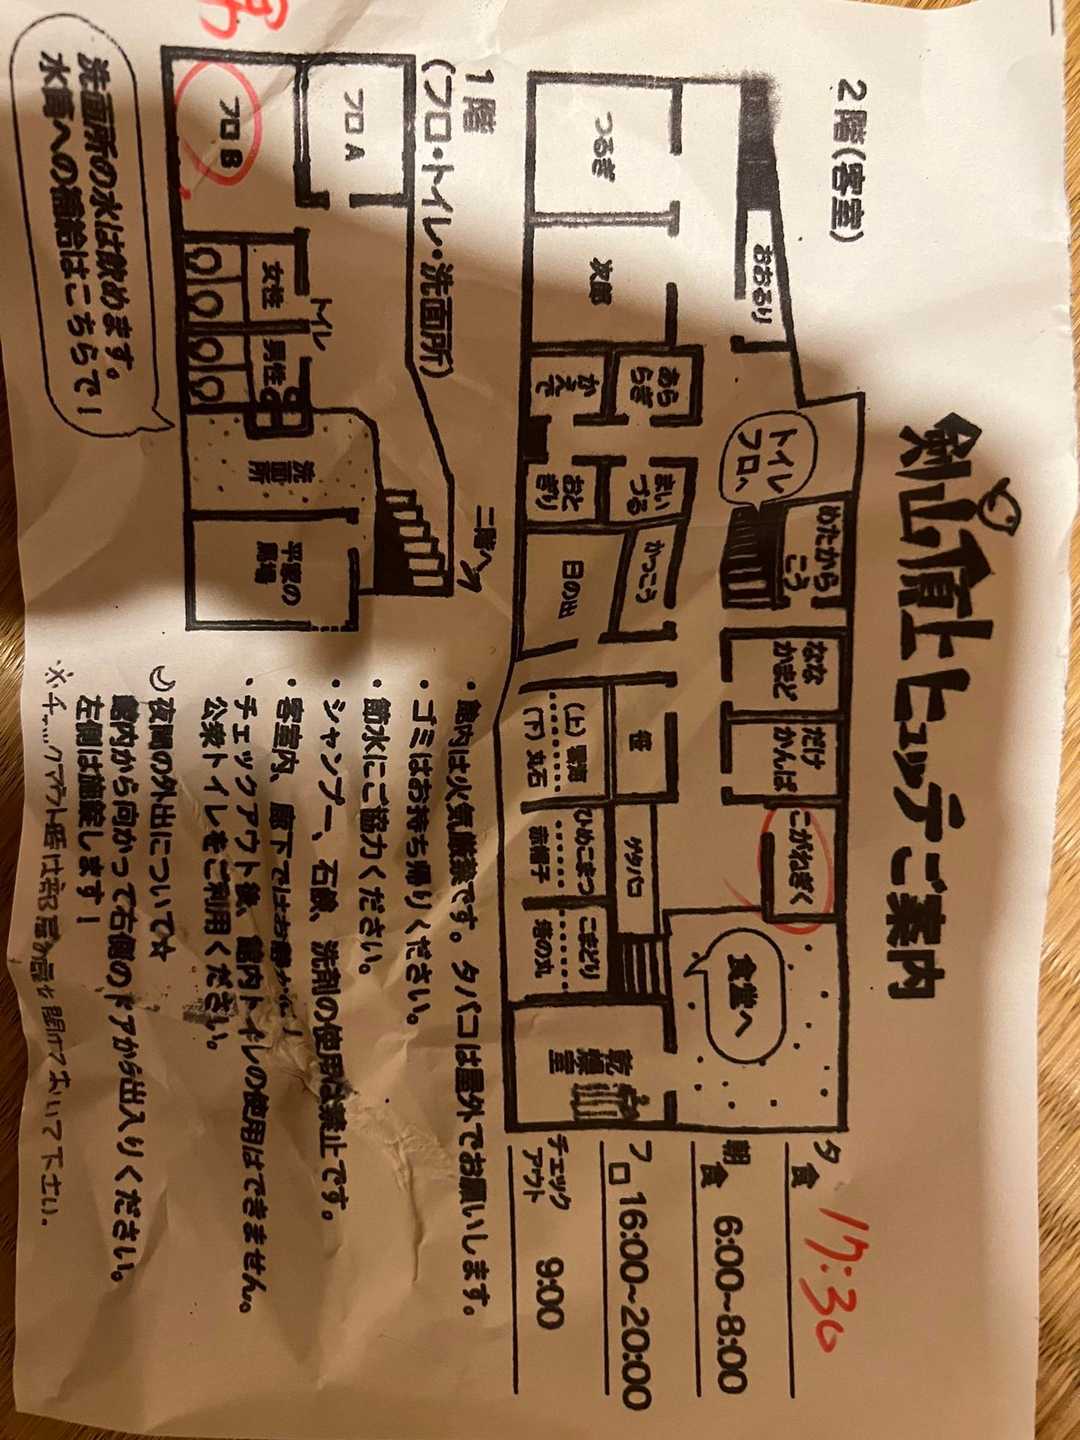 剣山頂上ヒュッテご案内
2階(客室)
おおるり
つるぎ
次郎
あららぎ
かえで
トイレ
フロへ
まいづる
おとぎり
めたからこう
かっこう
日の出
ななかまど
だけかんば
こがねぎく
笹
(上) 雲海
(下) 丸石
ゲタバコ
ひめこまつ
赤帽子
こまどり
塔の丸
食堂へ
乾燥室
夕食 17:30
朝食 6:00~8:00
フロ 16:00~20:00
チェックアウト 9:00
1階
(フロ・トイレ・洗面所)
フロ A
フロ B
トイレ
女性
男性
洗面所
平家の馬場
二階へ
洗面所の水は飲めます。
水筒への補給はこちらで!
・館内は火気厳禁です。タバコは屋外でお願いします。
・ゴミはお持ち帰りください。
・節水にご協力ください。
・シャンプー、石鹸、洗剤の使用は禁止です。
・客室内、廊下ではお静かに!
・チェックアウト後、館内トイレの使用はできません。
公衆トイレをご利用ください。
夜間の外出について☆
館内から向かって右側のドアから出入りください。
左側は施錠します!
※チェックアウト時は部屋の扉を開けておいて下さい.